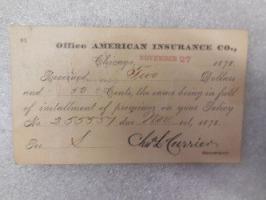 Office AMERICAN INSURANCE CO.,
Chicago, NOVEMBER 27 1878.
Received Two Dollars
and 50 Cents, the same being in full
of installment of premium on your Policy
No. 255551 due Nov 1st, 1878.
Per S Chas L Currier